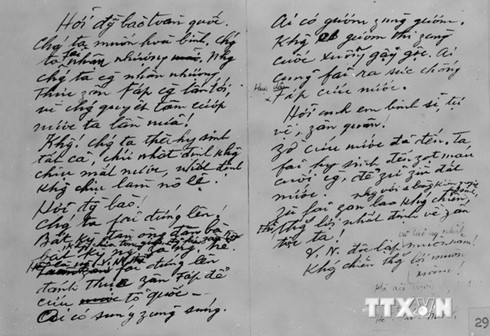 Hỡi đg bào toàn quốc.
Chg ta muốn hoà bình, chg
ta fải nhân nhượng. Nhưg
chg ta cg nhân nhượng
thực zân Fáp cg lấn tới,
vì chg quyết tâm cướp
nước ta lần nữa!
Khg! Chg ta thà hy sinh
tất cả, chứ nhất định khg
chịu mất nước, nhất định
khg chịu làm nô lệ.
Hỡi đg bào!
Chg ta fải đứng lên!
Bất kỳ đàn ông đàn bà
bất kỳ
fải đứng lên
đánh thực zân Fáp để
cứu tổ quốc.
Ai có súng zùng súng.
Ai có gươm zùng gươm.
Khg có gươm thì zùng
cuốc xuổng gậy gộc. Ai
cũng fải ra sức chống
Fáp cứu nước.
Hỡi anh em binh sĩ, tự
vệ, zân quân!
Zờ cứu nước đã đến. Ta
fải hy sinh đến zọt máu
cuối cg, để zữ zìn đất
nước.
Zù fải zan lao khg chiến,
thg lợi nhất định về zân
tộc ta!
V.N. độc lập muôn năm!
Khg chiến thg lợi muôn
năm!
29
TTXVN